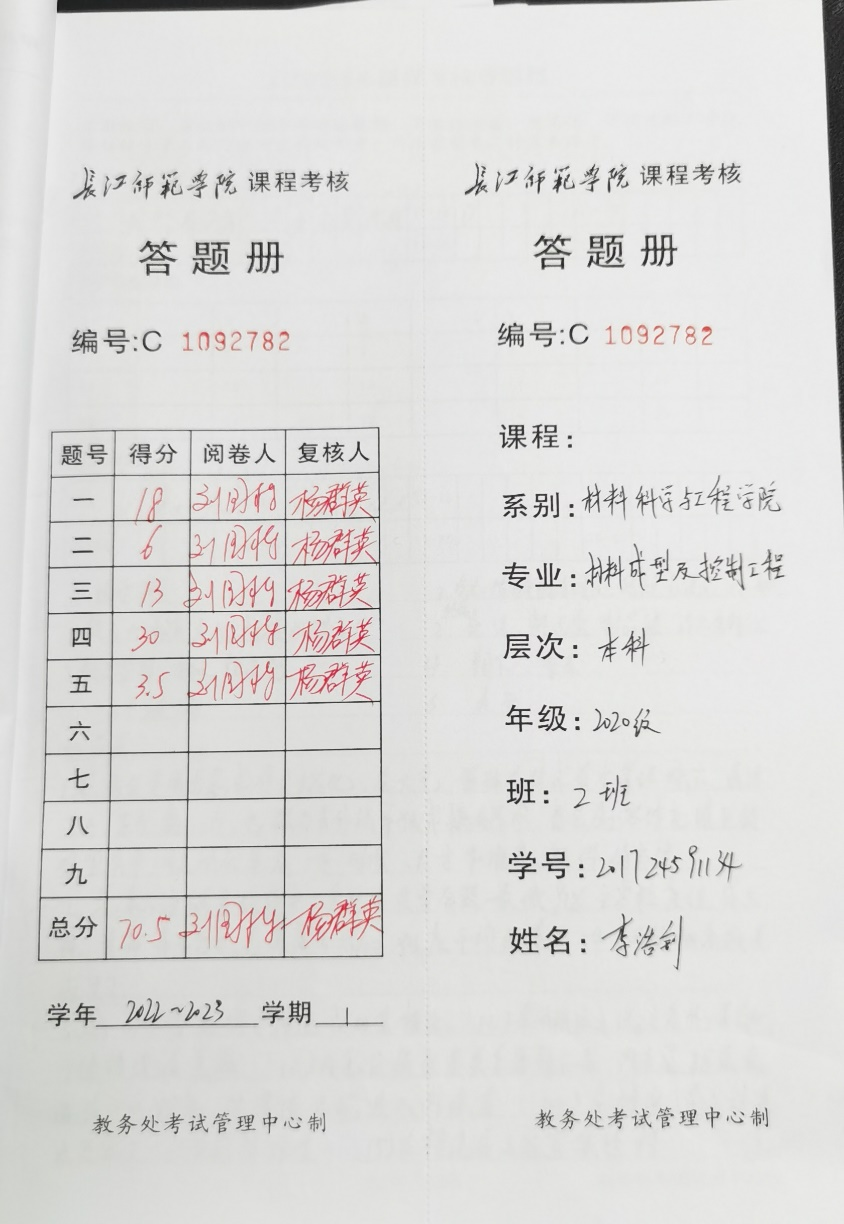 長江师範学院 课程考核
答题册
编号:C 1092782
题号 得分 阅卷人 复核人
一 18 杨群英
二 6 杨群英
三 13 杨群英
四 30 杨群英
五 3.5 杨群英
六
七
八
九
总分 70.5 杨群英
学年 2022~2023 学期 1
教务处考试管理中心制
長江师範学院 课程考核
答题册
编号:C 1092782
课程:
系别:材料科学与工程学院
专业:材料成型及控制工程
层次:本科
年级:2020级
班:2班
学号:201724591134
姓名:李浩利
教务处考试管理中心制